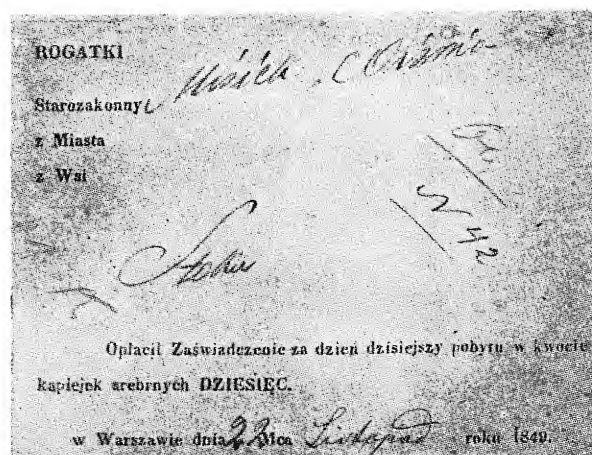 ROGATKI
Starozakonny
z Miasta
z Wsi
N 42
Opłacił Zaświadczenie za dzień dzisiejszy pobytu w kwocie
kapiejek srebrnych DZIESIĘC.
w Warszawie dnia 22 Mca Listopad roku 1849.